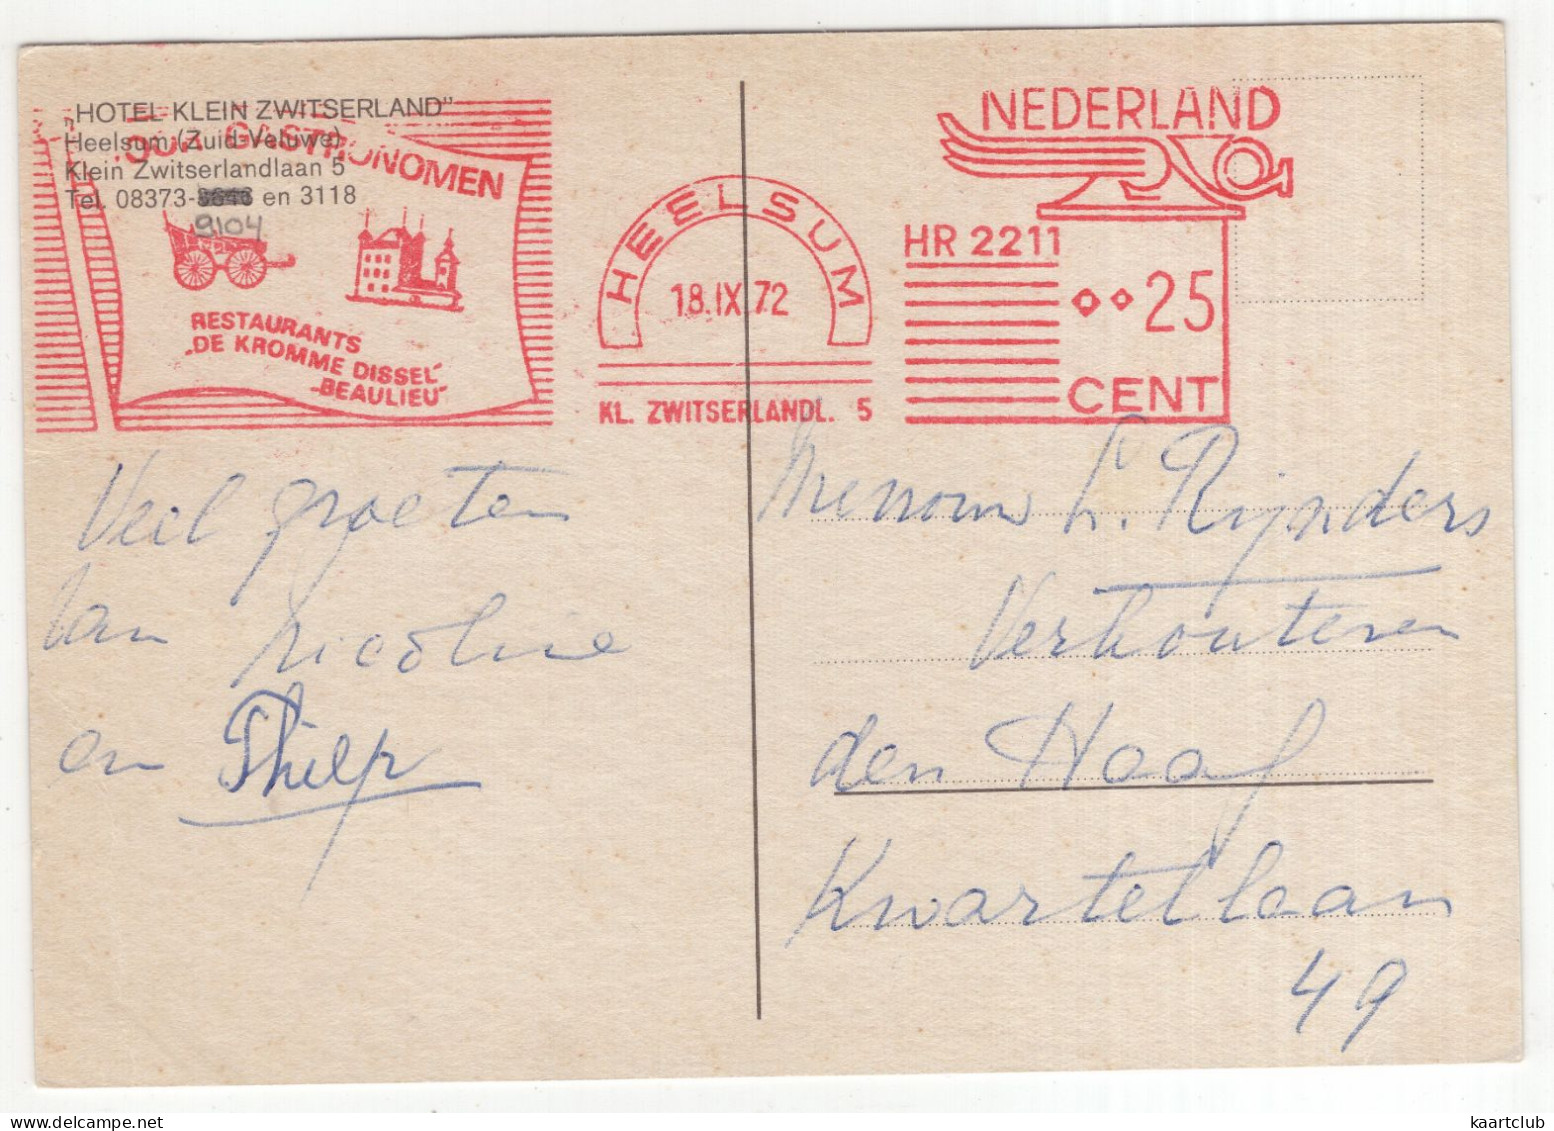 „HOTEL KLEIN ZWITSERLAND"
Heelsum (Zuid-Veluwe)
Klein Zwitserlandlaan 5
Tel. 08373- en 3118
9104
GASTRONOMEN
RESTAURANTS
„DE KROMME DISSEL"
„BEAULIEU"
HEELSUM
18.IX.72
KL. ZWITSERLANDL. 5
NEDERLAND
HR 2211
25
CENT
Veel groeten
van Nicoline
en Philip
Mevrouw L. Rijnders
Verhouteren
den Haag
Kwartellaan
49
kaartclub
www.delcampe.net